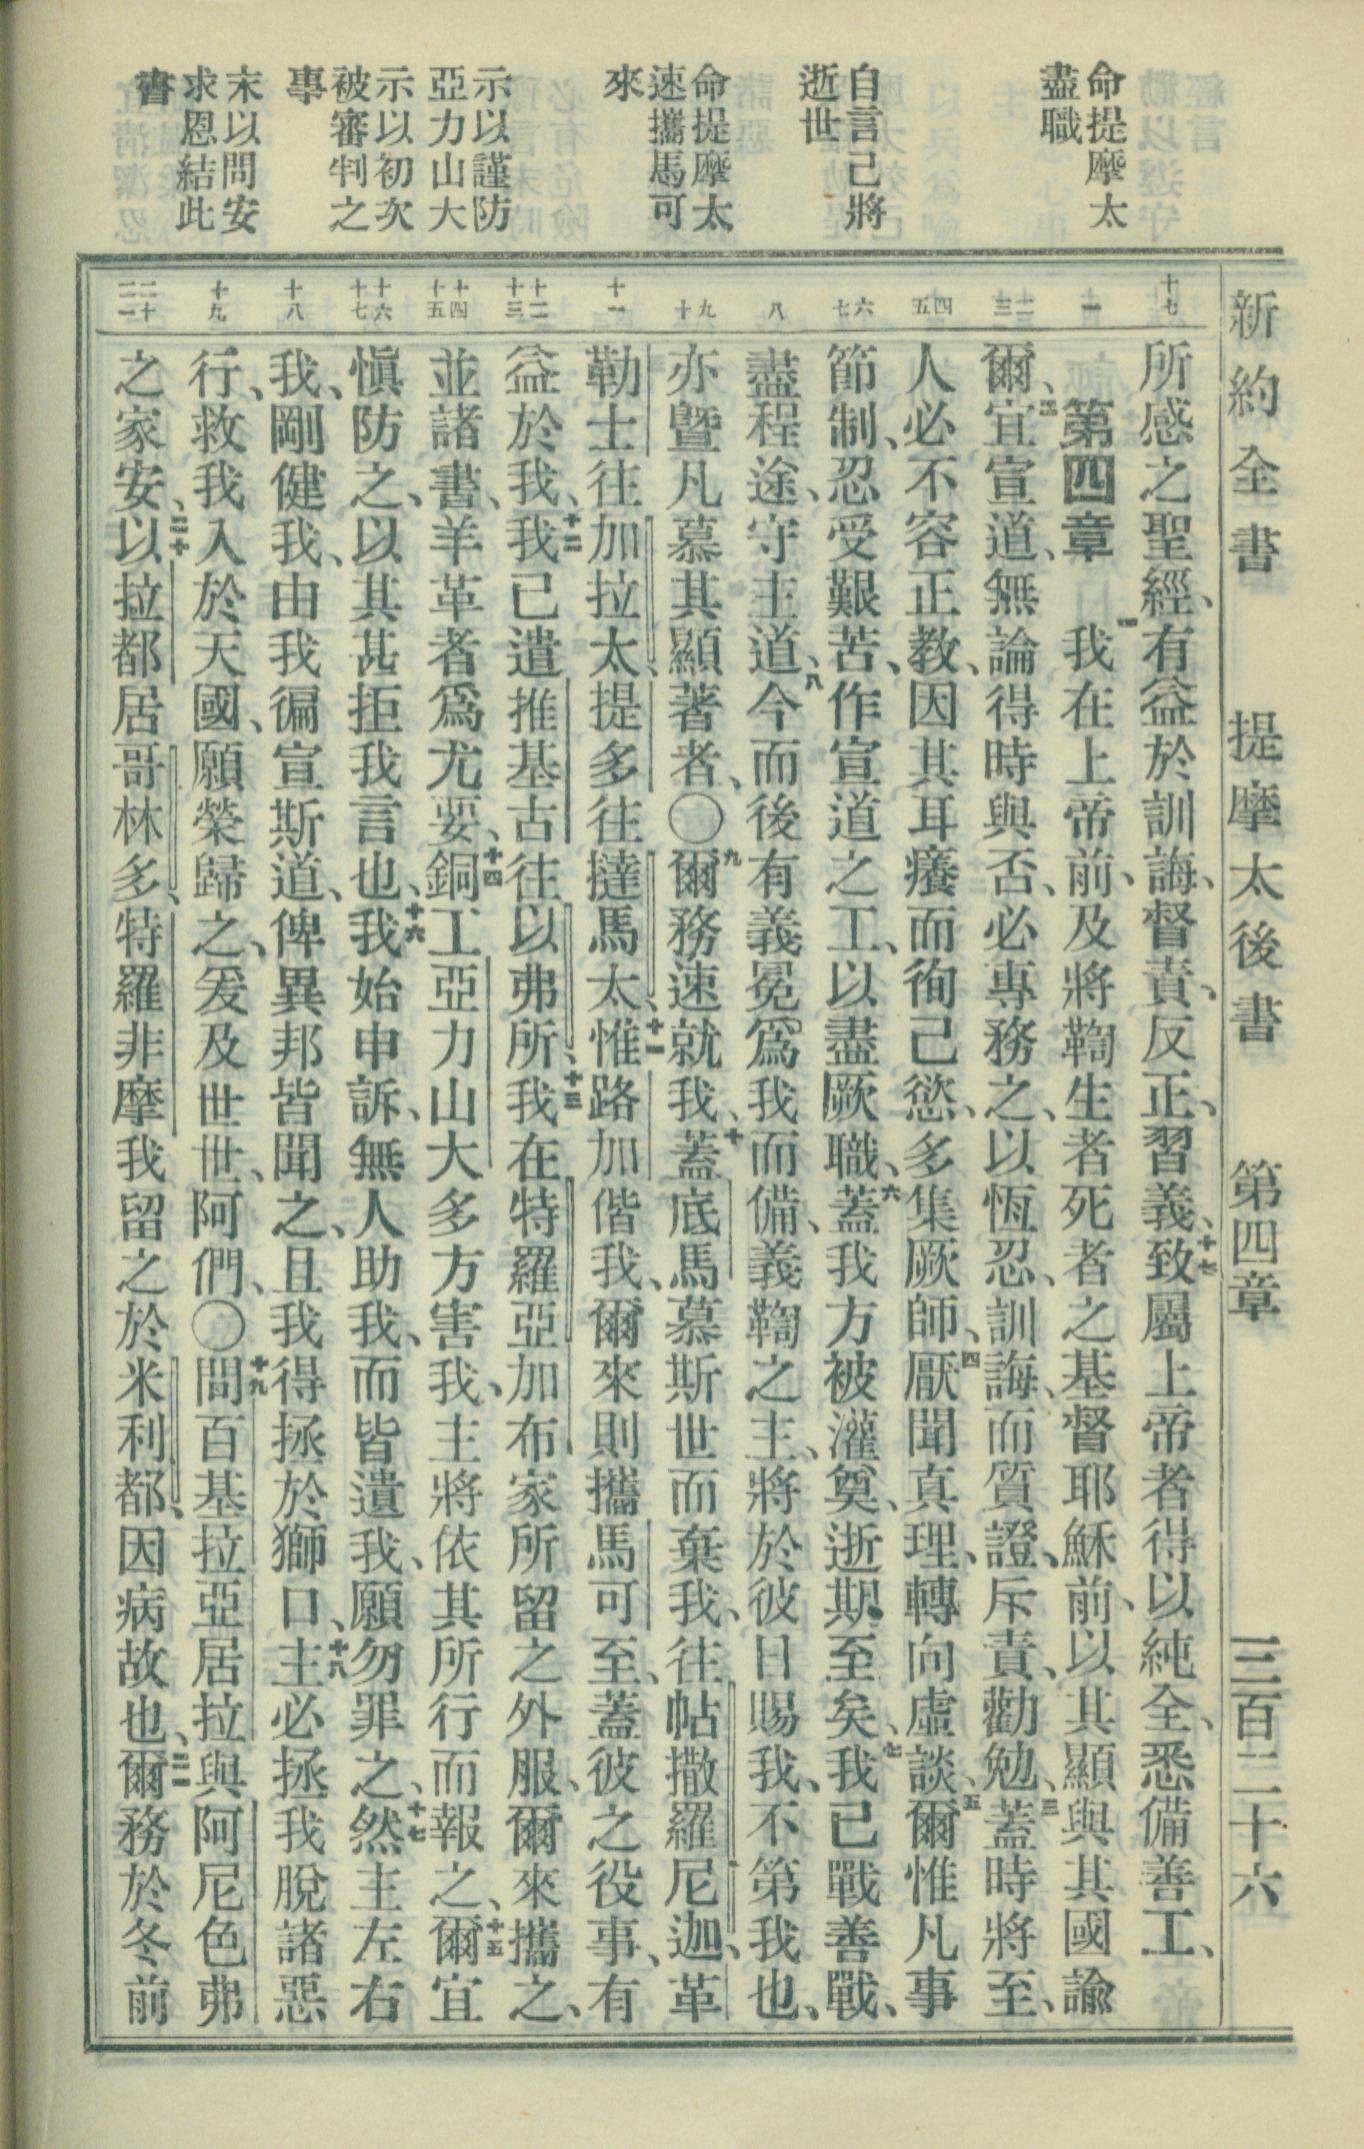 新約全書 提摩太後書 第四章 三百二十六
命提摩太
盡職
自言己將
逝世
命提摩太
速攜馬可
來
示以謹防
亞力山大
示以初次
被審判之
事
末以問安
求恩結此
書
十七
一
二 三
四 五
六 七
八
九 十
十一
十二 十三
十四 十五
十六 十七
十八
十九
二十 二一
所感之聖經、有益於訓誨、督責、反正、習義、十七致屬上帝者得以純全、悉備善工、
第四章 一我在上帝前、及將鞫生者死者之基督耶穌前、以其顯與其國諭
爾、二宜宣道、無論得時與否、必專務之、以恆忍、訓誨、而質證、斥責、勸勉、三蓋時將至、
人必不容正教、因其耳癢而徇己慾、多集厥師、四厭聞真理、轉向虛談、五爾惟凡事
節制、忍受艱苦、作宣道之工、以盡厥職、六蓋我方被灌奠、逝期至矣、七我已戰善戰、
盡程途、守主道、八今而後有義冕爲我而備、義鞫之主、將於彼日賜我、不第我也、
亦曁凡慕其顯著者、〇九爾務速就我、十蓋底馬慕斯世而棄我、往帖撒羅尼迦、革
勒士往加拉太、提多往撻馬太、十一惟路加偕我、爾來則攜馬可至、蓋彼之役事、有
益於我、十二我已遣推基古往以弗所、十三我在特羅亞加布家所留之外服、爾來攜之、
並諸書、羊革者爲尤要、十四銅工亞力山大多方害我、主將依其所行而報之、十五爾宜
愼防之、以其甚拒我言也、十六我始申訴、無人助我、而皆遺我、願勿罪之、十七然主左右
我、剛健我、由我徧宣斯道、俾異邦皆聞之、且我得拯於獅口、十八主必拯我脫諸惡
行、救我入於天國、願榮歸之、爰及世世、阿們、〇十九問百基拉亞居拉與阿尼色弗
之家安、二十以拉都居哥林多、特羅非摩我留之於米利都、因病故也、二一爾務於冬前